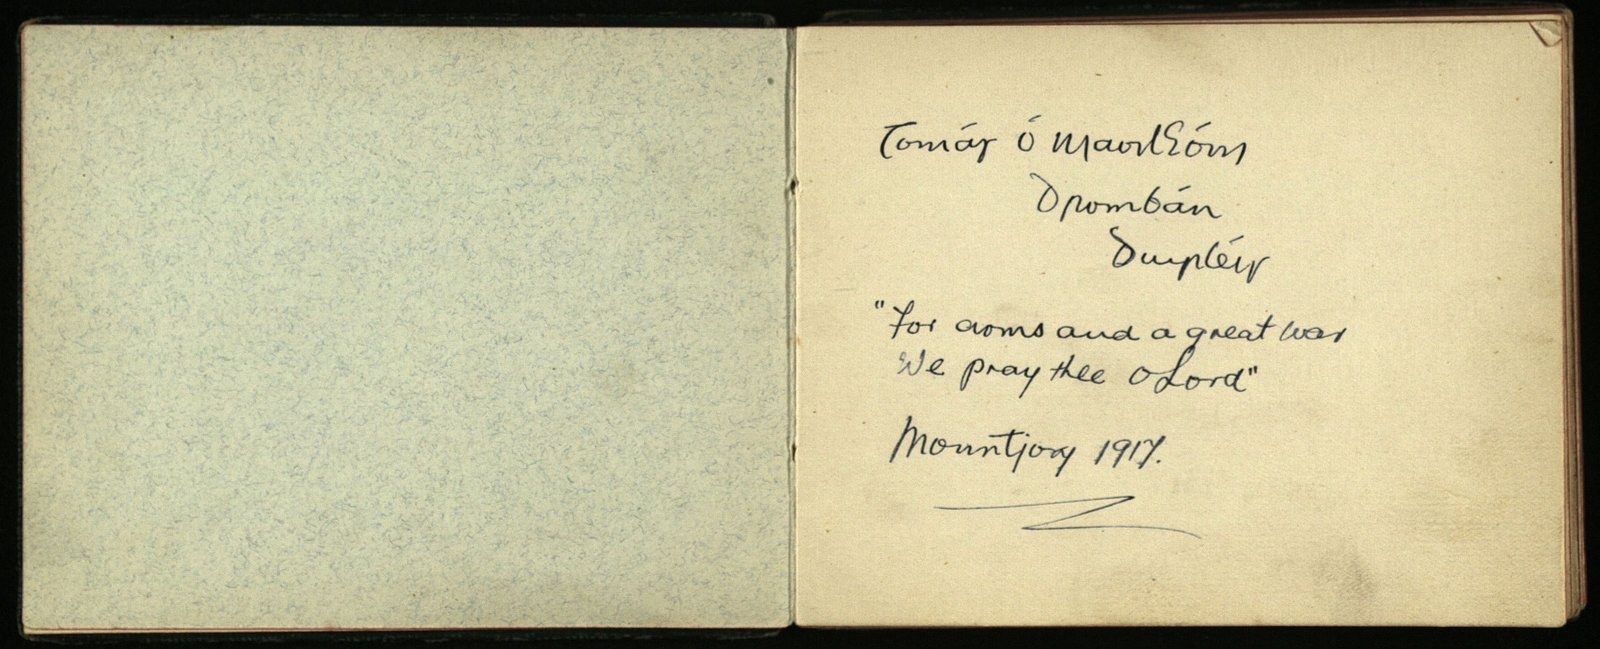 Tomás Ó MaoilEóin
Drombán
Duirléis
"for arms and a great war
We pray thee O Lord"
Mountjoy 1917.